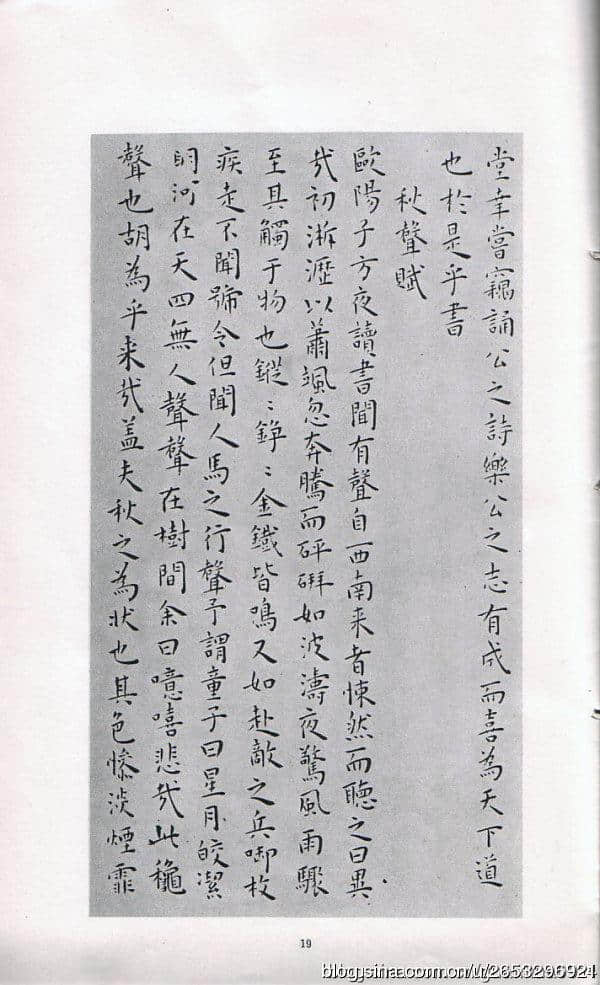 堂幸嘗竊誦公之詩樂公之志有成而喜為天下道
也於是乎書
秋聲賦
歐陽子方夜讀書聞有聲自西南来者悚然而聽之曰異
哉初淅瀝以蕭颯忽奔騰而砰硑如波濤夜驚風雨驟
至其觸于物也鏦〻錚〻金鐵皆鳴又如赴敵之兵啣枚
疾走不聞號令但聞人馬之行聲予謂童子曰星月皎潔
明河在天四無人聲聲在樹間余曰噫嘻悲哉此穐
聲也胡為乎来哉盖夫秋之為状也其色惨淡煙霏
19
blog.sina.com.cn/u/2653296924